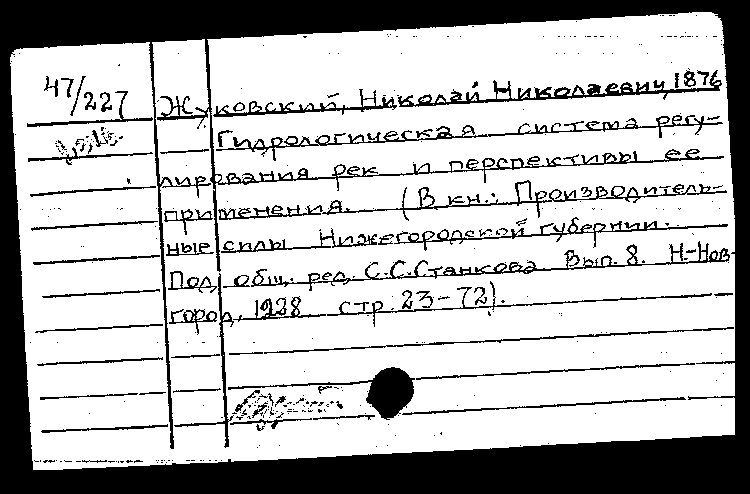 47/227
Жуковский, Николай Николаевич, 1876
Гидрологическая система регу-
лирования рек и перспективы ее
применения. (В кн.: Производитель-
ные силы Нижегородской губернии.
Под общ. ред. С.С.Станкова Вып. 8. Н-Нов-
город, 1928 стр. 23-72).